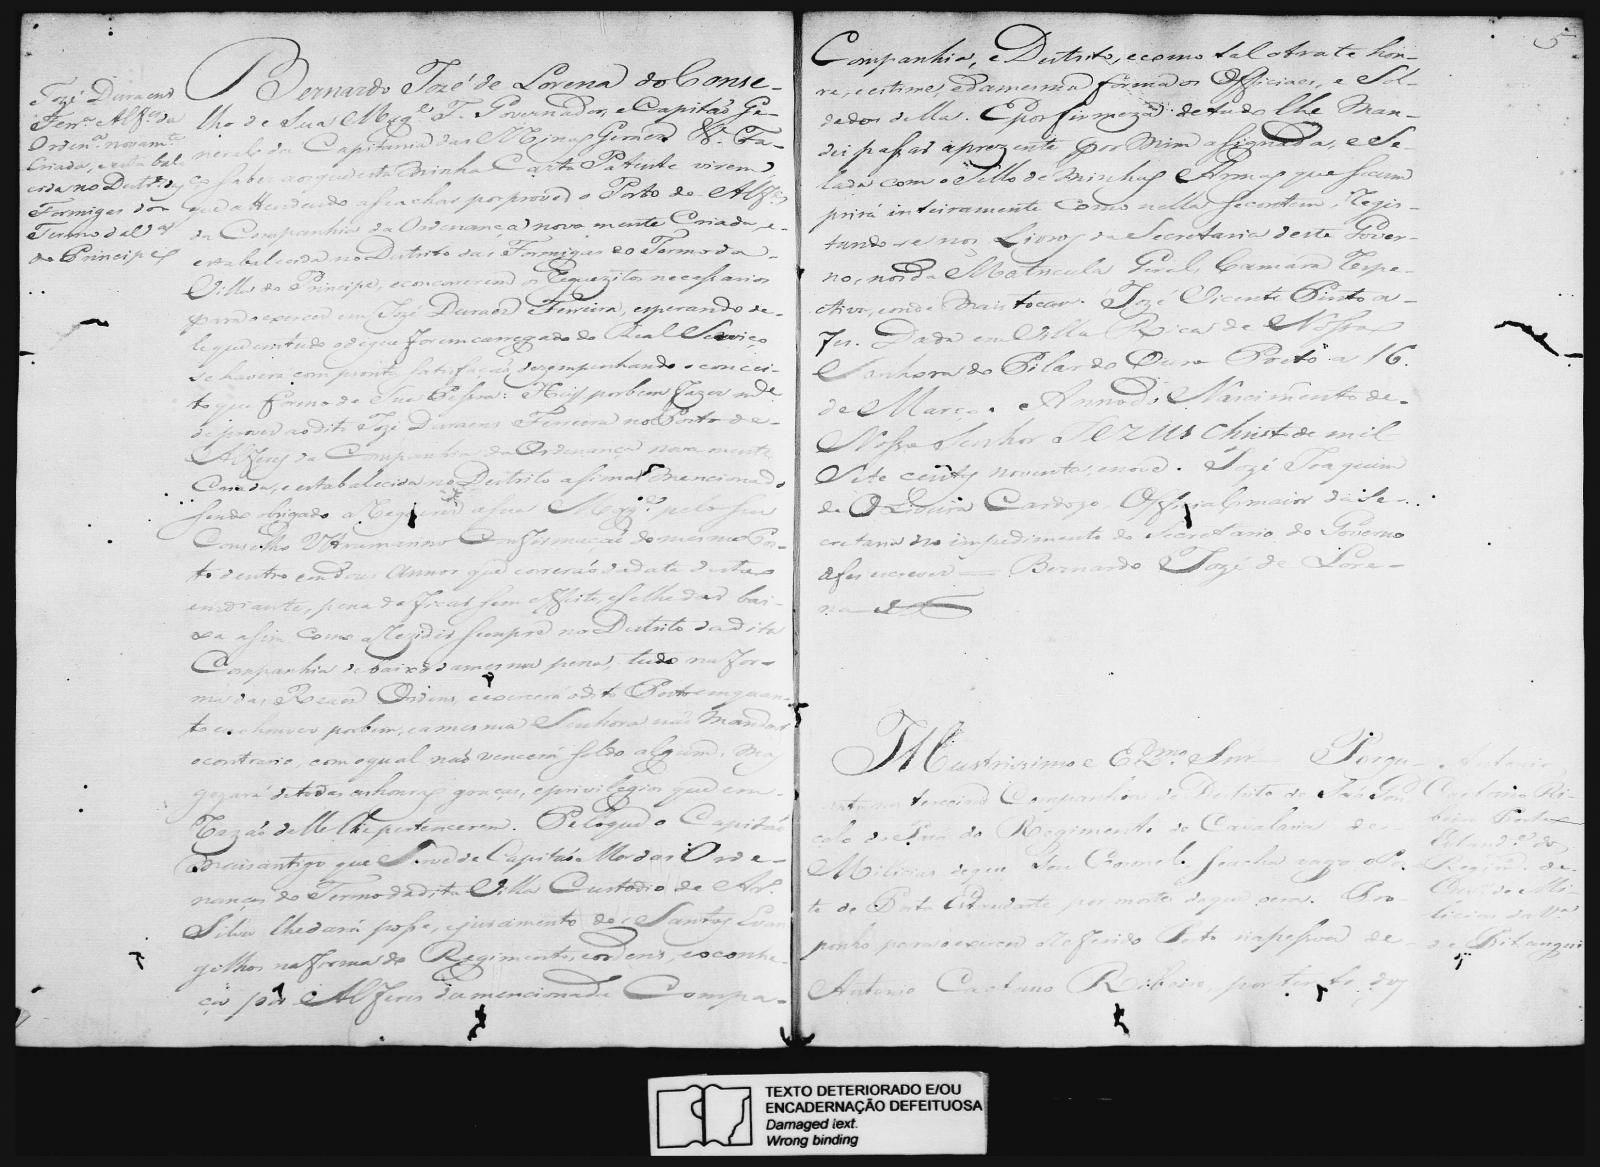 Jozé Duraens
Ferrª Alfes da
Ordençª novamte
Criada, e estabal
ecida no Destrito
Formigas do
Termo da Vª
do Principe
Bernardo Jozé de Lorena do Conse-
lho de Sua Magde F. Governador, e Capitão Ge-
neral da Capitania das Minas Geraes &. Fa-
ço saber aos que esta minha Carta Patente virem,
que attendendo a se achar por prover o Posto de Alfes
da Companhia da Ordenança nova mente Criada, e
estabalecida no Destrito das Formigas do Termo da
Villa do Principe, e concorrerem os Requezitos necessarios
para o exercer em Jozé Duraes Ferreira, esperando de-
le que em tudo o de que for encarregado do Real Serviço
se haverá com pronta satisfação, dezempenhando o concei-
to que formo da Sua Pessoa: Hey por bem fazer mce
de prover ao dito Jozé Duraens Ferreira no Posto de
Alferes da Companhia da Ordenança nova mente
Creada, e estabalecida no Destrito asima mencionado
sendo obrigado a Requerer a sua Magde pelo seu
Conselho Ultramarino Confirmação do mesmo Pos-
to dentro em dous Annos que correrão da data desta
em diante, pena de ficar sem effeito, e se lhe dar bai-
xa asim como a Rezidir sempre no Destrito da dita
Companhia debaixo da mesma pena, tudo na for-
ma das Reaes Ordens, e exercerá o dito Posto emquan-
to eu houver por bem, e a mesma Senhora não mandar
o contrario, com o qual não vencerá soldo algum, mas
gozará de todas as honras graças, e privilegios que em
Razão delle lhe pertencerem. Pelo que o Capitão
mais antigo que Serve de Capitão Mor das Orde-
nanças do Termo da dita Villa Custodio de
Silva lhe dará posse, e juramento dos Santos Evan
gelhos na forma do Regimento, e ordens, e o conhe-
ça por Alferes da mencionada Compa-
5
Companhia, e Destrito, e como tal o trate hon-
re, e estime, e da mesma fórma os Officiaes, e Sol-
dados della. E por firmeza de tudo lhe Man-
dei passar a prezente por mim assignada, e Se-
lada com o Sello de minhas Armas que se cum
prirá inteiramente como nella se contem, Regis-
tando-se nos Livros da Secretaria deste Gover-
no, nos da Matricula Geral, Camara Respe-
ctiva, e onde mais tocar. Jozé Vicente Pinto a
fes. Dada em Villa Rica de Nossa
Senhora do Pilar do Ouro Preto a 16.
de Março. e Anno do Nascimento de-
Nosso Senhor JEZUS Christo de mil
Sete centos noventa, e nove. Jozé Joaquim
de Oliveira Cardozo, Official maior da Se-
cretaria no impedimento do Secretario do Governo
a fes escrever = Bernardo Jozé de Lore-
na
Illustrissimo e Exmo Snr Porqu-
anto na terceira Companhia do Destrito de São Gon
çalo do Pará do Regimento de Cavalaria de
Milicias de que Coronel se acha vago o Pos
to de Porta Estendarte por morte de quem o era. Pro-
ponho para exercer o Referido Posto na pessoa de
Antonio Caetano Ribeiro, por ter
Antonio
Caetano Ri-
beiro Porta
Estande do
Regimto de
Cavª de Mi-
licias da Vª
de Pitangui
TEXTO DETERIORADO E/OU
ENCADERNAÇÃO DEFEITUOSA
Damaged text.
Wrong binding